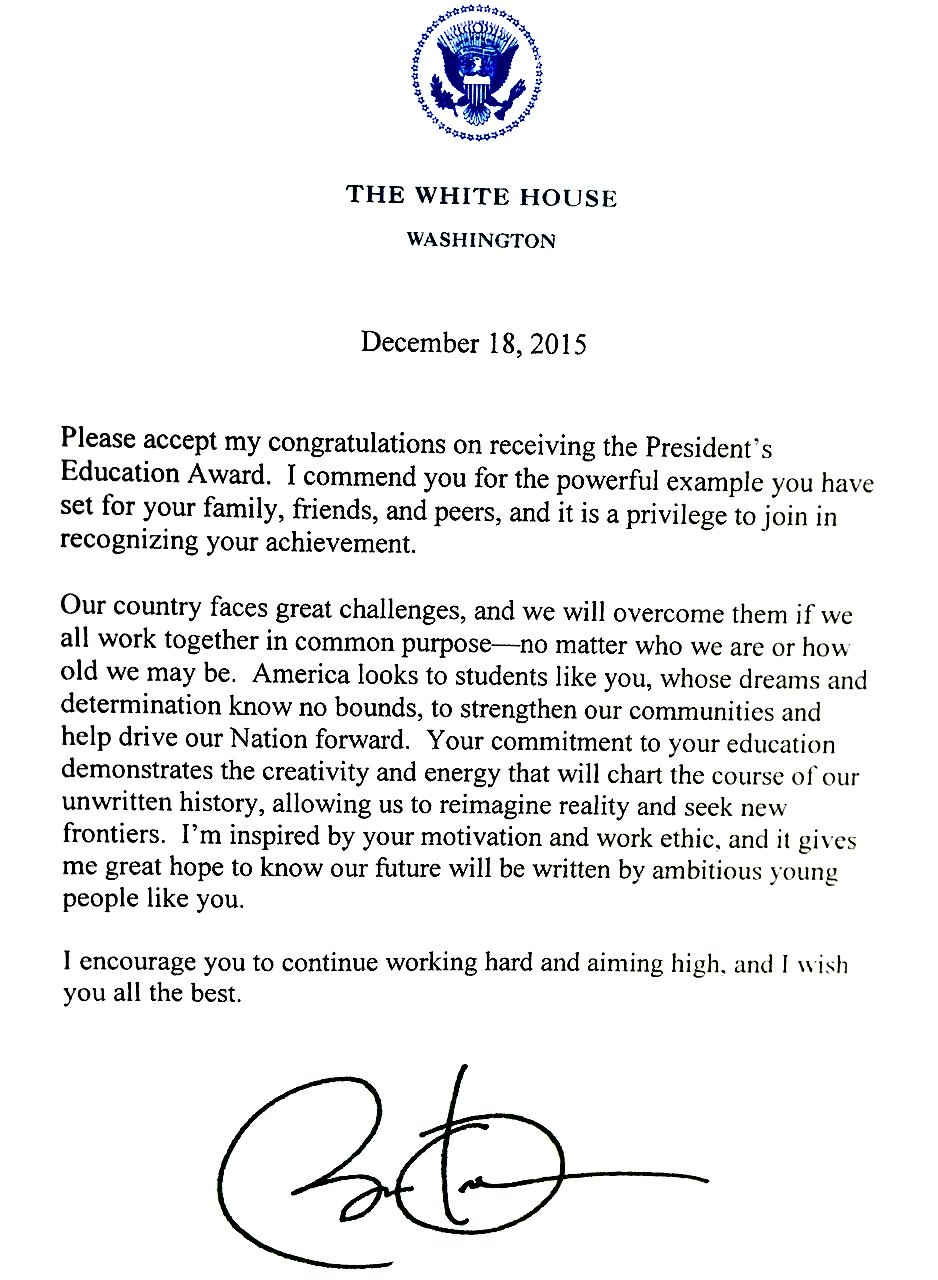 THE WHITE HOUSE
WASHINGTON
December 18, 2015
Please accept my congratulations on receiving the President's
Education Award.  I commend you for the powerful example you have
set for your family, friends, and peers, and it is a privilege to join in
recognizing your achievement.
Our country faces great challenges, and we will overcome them if we
all work together in common purpose—no matter who we are or how
old we may be.  America looks to students like you, whose dreams and
determination know no bounds, to strengthen our communities and
help drive our Nation forward.  Your commitment to your education
demonstrates the creativity and energy that will chart the course of our
unwritten history, allowing us to reimagine reality and seek new
frontiers.  I'm inspired by your motivation and work ethic, and it gives
me great hope to know our future will be written by ambitious young
people like you.
I encourage you to continue working hard and aiming high, and I wish
you all the best.